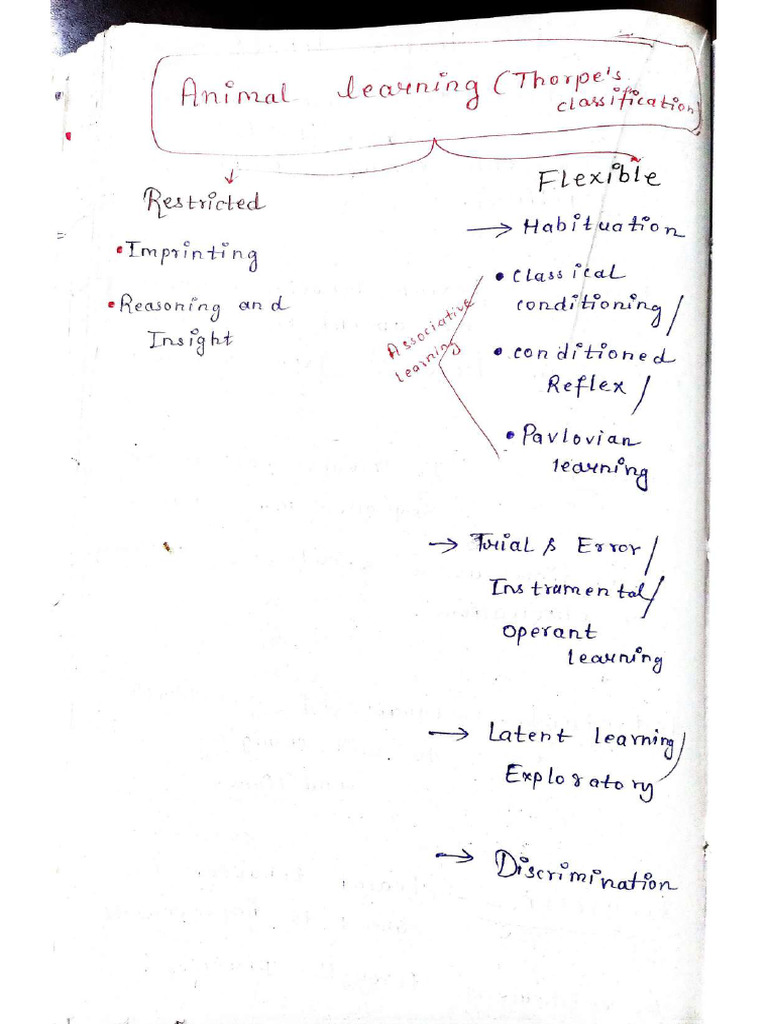 Animal learning (Thorpe's
classification)
Restricted
• Imprinting
• Reasoning and
Insight
Flexible
→ Habituation
Associative
learning
• Classical
conditioning/
• conditioned
Reflex/
• Pavlovian
learning
→ Trial & Error/
Instrumental/
operant
learning
→ Latent learning/
Exploratory
→ Discrimination